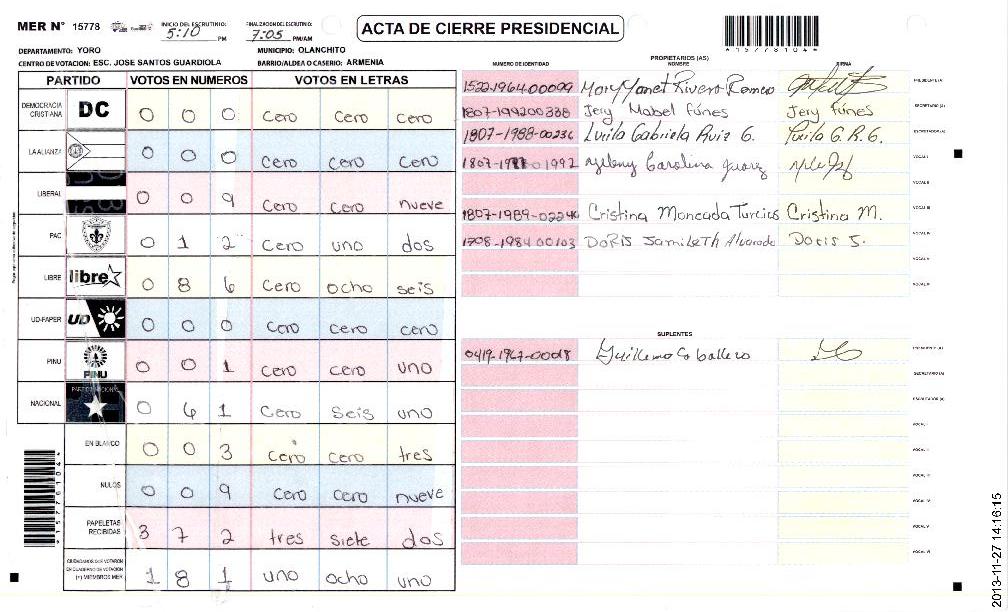 MER N° 15778 INICIO DEL ESCRUTINIO: 5:10 PM FINALIZACION DEL ESCRUTINIO: 7:05 PM/AM
ACTA DE CIERRE PRESIDENCIAL
*1577810 4*
DEPARTAMENTO: YORO MUNICIPIO: OLANCHITO
CENTRO DE VOTACION: ESC. JOSE SANTOS GUARDIOLA BARRIO/ALDEA O CASERIO: ARMENIA
PARTIDO VOTOS EN NUMEROS VOTOS EN LETRAS
DEMOCRACIA CRISTIANA DC 0 0 0 Cero Cero Cero
LA ALIANZA 0 0 0 Cero Cero Cero
LIBERAL 0 0 9 Cero Cero nueve
PAC 0 1 2 Cero uno dos
LIBRE libre 0 8 6 Cero ocho seis
UD-FAPER UD 0 0 0 Cero cero cero
PINU PINU 0 0 1 Cero cero uno
NACIONAL PARTIDO NACIONAL 0 6 1 Cero Seis uno
EN BLANCO 0 0 3 cero cero tres
NULOS 0 0 9 Cero Cero nueve
PAPELETAS RECIBIDAS 3 7 2 tres siete dos
CIUDADANOS QUE VOTARON EN CUADERNO DE VOTACION (+) MIEMBROS MER 1 8 1 uno ocho uno
PROPIETARIOS (AS)
NUMERO DE IDENTIDAD NOMBRE FIRMA
1522-1964-00099 Mary Yanet Rivera Romero PRESIDENTE (A)
1807-199200338 Jery Mabel Fúnes Jery Fúnes SECRETARIO (A)
1807-1988-00236 Lurila Gabriela Ruiz G. G.R.G. ESCRUTADOR (A)
Carolina VOCAL I
VOCAL II
1807-1989-02240 Cristina Moncada Turcios Cristina M. VOCAL III
1708-1984 00103 DORIS Jamileth Alvarado Doris J. VOCAL IV
VOCAL V
VOCAL VI
SUPLENTES
0419-1967-00018 Guillermo Caballero PRESIDENTE (A)
SECRETARIO (A)
ESCRUTADOR (A)
VOCAL I
VOCAL II
VOCAL III
VOCAL IV
VOCAL V
VOCAL VI
2013-11-27 14:16:15